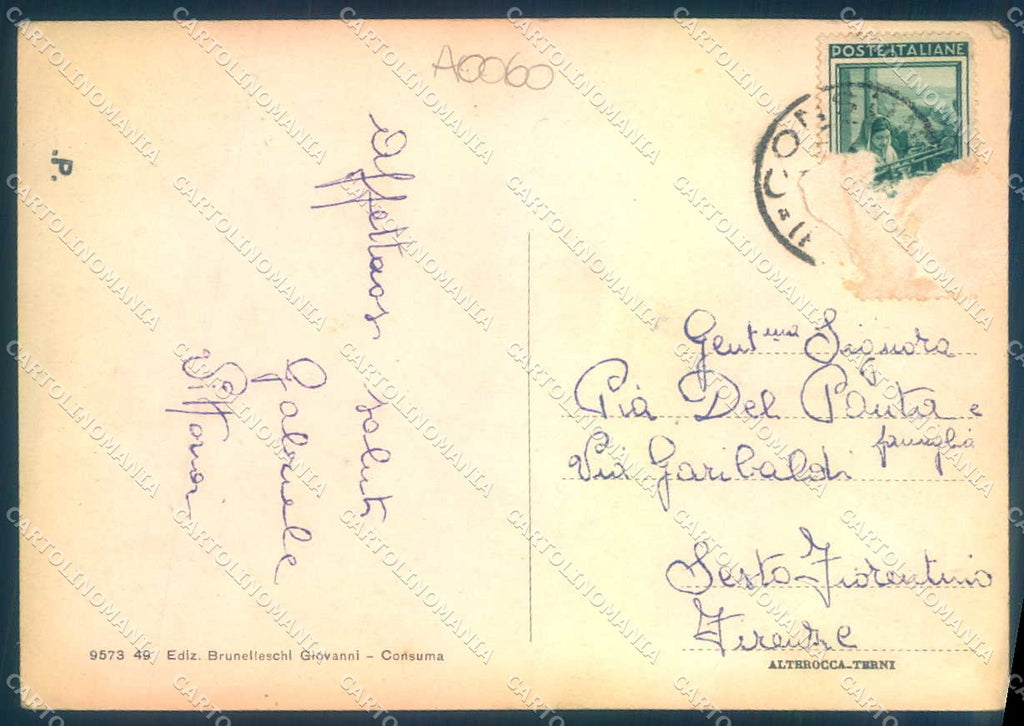 A0060
POSTE ITALIANE
.P.
Affettuosi saluti
Gabriele
Vittoria
Gent.ma Signora
Pia Del Panta e
famiglia
Via Garibaldi
Sesto-Fiorentino
Firenze
9573 49 Ediz. Brunelleschi Giovanni - Consuma
ALTEROCCA-TERNI
CARTOLINOMANIA